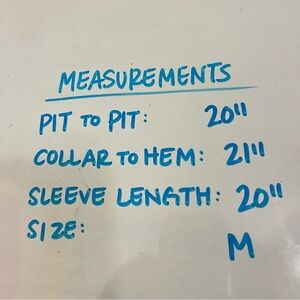 MEASUREMENTS
PIT TO PIT: 20"
COLLAR TO HEM: 21"
SLEEVE LENGTH: 20"
SIZE: M